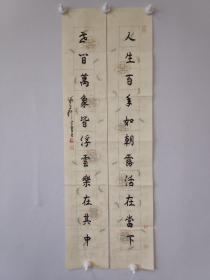 人生百年如朝露活在當下
世間萬象皆浮雲樂在其中